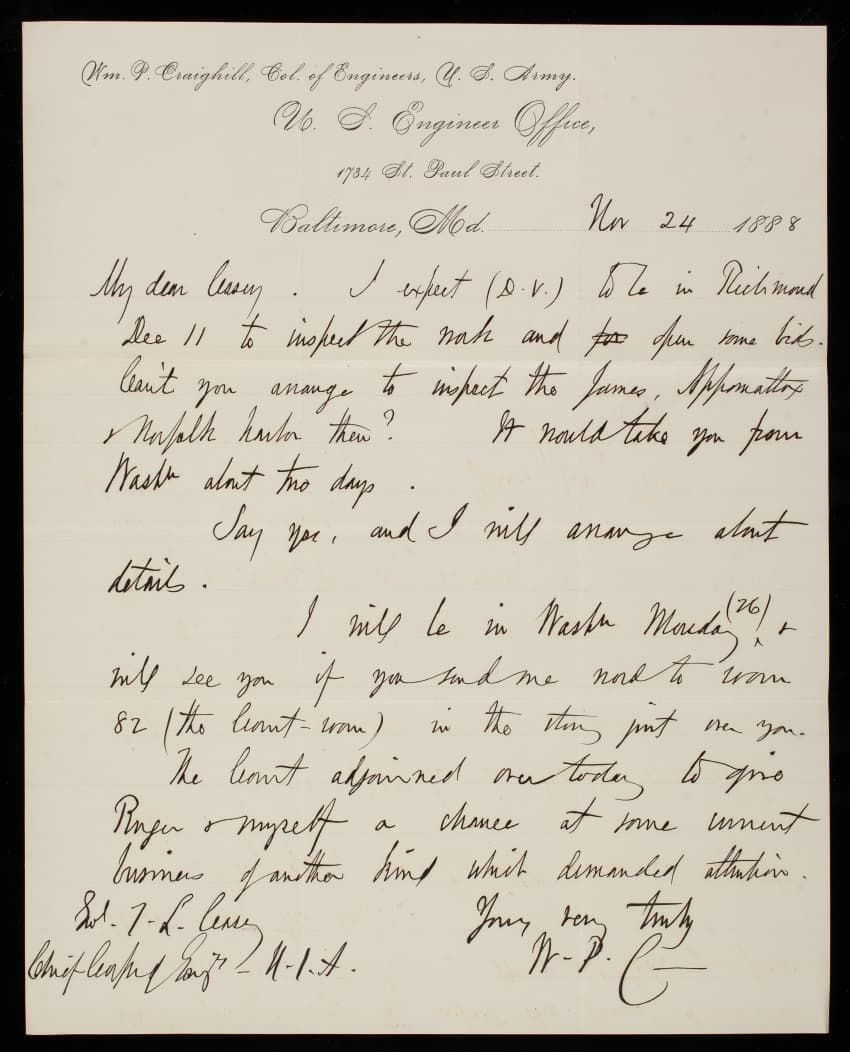 Wm. P. Craighill, Col. of Engineers, U. S. Army.
U. S. Engineer Office,
1734 St. Paul Street.
Baltimore, Md. Nov 24 1888
My dear Casey. I expect (D.V.) to be in Richmond
Dec 11 to inspect the work and for open some bids.
Can't you arrange to inspect the James, Appomattox
& Norfolk harbor then? It would take you from
Washn about two days.
Say yes, and I will arrange about
details.
I will be in Washn Monday (26) &
will see you if you send me word to room
82 (the Court-room) in the story just over you.
The Court adjourned over today to give
Ruger & myself a chance at some current
business of another kind which demanded attention.
Yours very truly
W. P. C
T. L. Casey
Chief Corps of Engrs U.S.A.